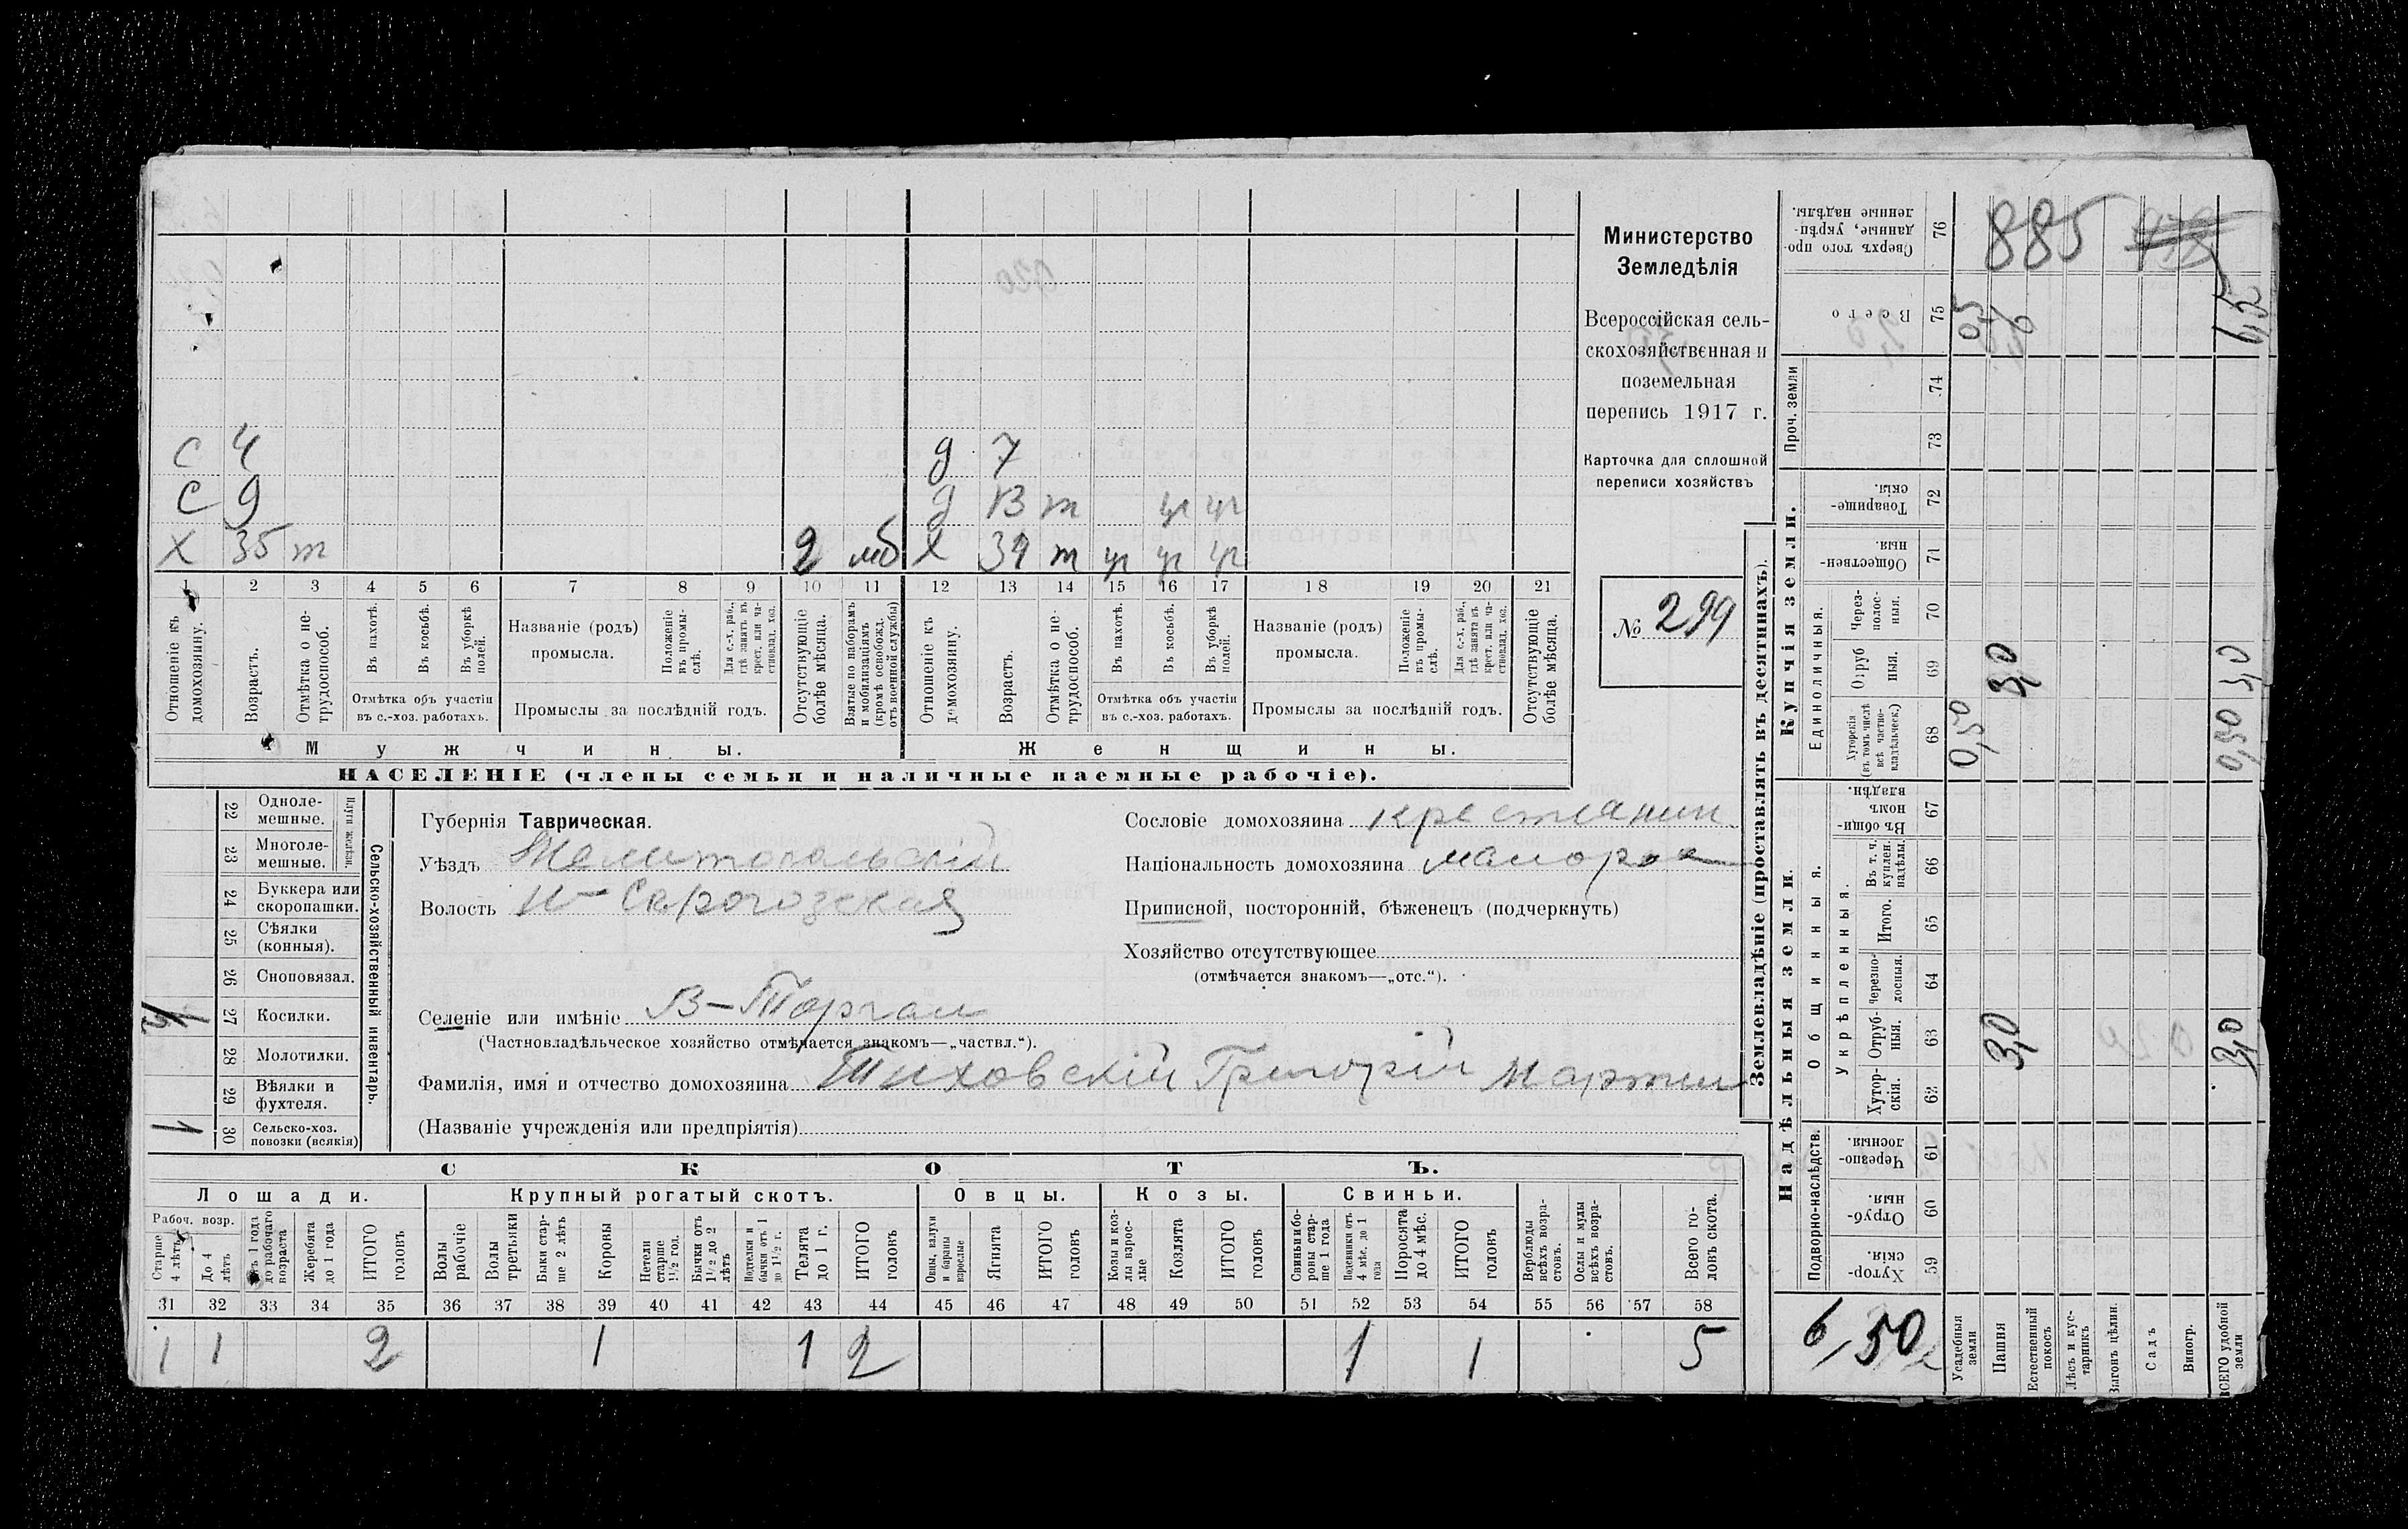 885
Министерство
Земледѣлія
Всероссійская сель-
скохозяйственная и
поземельная
перепись 1917 г.
Карточка для сплошной
переписи хозяйствъ
№ 299
с 4
с 9
х 35 т 2 мб
д 7
д 13 т ч ч
х 34 т ч ч ч
1 2 3 4 5 6 7 8 9 10 11 12 13 14 15 16 17 18 19 20 21
Отношеніе къ домохозяину.
Возрастъ.
Отмѣтка о не-трудоспособ.
Въ пахотѣ.
Въ косьбѣ.
Въ уборкѣ полей.
Отмѣтка объ участіи
въ с.-хоз. работахъ.
Названіе (родъ)
промысла.
Положеніе въ промы-слѣ.
Для с.-х. раб., гдѣ занятъ въ крест. или ча-стновлад. хоз.
Промыслы за послѣдній годъ.
Отсутствующіе болѣе мѣсяца.
Взятые по наборамъ и мобилизаціямъ (кромѣ освобожд. отъ военной службы)
Отношеніе къ домохозяину.
Возрастъ.
Отмѣтка о не-трудоспособ.
Въ пахотѣ.
Въ косьбѣ.
Въ уборкѣ полей.
Отмѣтка объ участіи
въ с.-хоз. работахъ.
Названіе (родъ)
промысла.
Положеніе въ промы-слѣ.
Для с.-х. раб., гдѣ занята въ крест. или ча-стновлад. хоз.
Промыслы за послѣдній годъ.
Отсутствующіе болѣе мѣсяца.
Мужчины.
Женщины.
НАСЕЛЕНІЕ (члены семьи и наличные наемные рабочіе).
22 Одноле-мешные.
23 Многоле-мешные.
24 Буккера или скоропашки.
25 Сѣялки (конныя).
26 Сноповязал.
27 Косилки.
28 Молотилки.
29 Вѣялки и фухтеля.
30 Сельско-хоз. повозки (всякія) 1
Сельско-хозяйственный инвентарь.
Губернія Таврическая.
Уѣздъ Мелитопольскій
Волость Н-Серогозская
Селеніе или имѣніе В-Торгаи
(Частновладѣльческое хозяйство отмѣчается знакомъ—„частвл.“).
Фамилія, имя и отчество домохозяина Тиховскій Григорій Мартин
(Названіе учрежденія или предпріятія)
Сословіе домохозяина крестянин
Національность домохозяина малорос
Приписной, посторонній, бѣженецъ (подчеркнуть)
Хозяйство отсутствующее
(отмѣчается знакомъ—„отс.“).
СКОТЪ.
Лошади.
Крупный рогатый скотъ.
Овцы.
Козы.
Свиньи.
Рабоч. возр.
Старше 4 лѣтъ
До 4 лѣтъ
Отъ 1 года до рабочаго возраста
Жеребята до 1 года
ИТОГО головъ
Волы рабочіе
Волы третьяки
Быки стар-ше 2 лѣтъ
Коровы
Нетели старше 1½ год.
Бычки отъ 1½ до 2 лѣтъ
Подтелки и бычки отъ 1 до 1½ г.
Телята до 1 г.
ИТОГО головъ
Овцы, валухи и бараны взрослые
Ягнята
ИТОГО головъ
Козы и коз-лы взрос-лые
Козлята
ИТОГО головъ
Свиньи и бо-ровы стар-ше 1 года
Подсвинки отъ 4 мѣс. до 1 года
Поросята до 4 мѣс.
ИТОГО головъ
Верблюды всѣхъ возра-стовъ.
Ослы и мулы всѣхъ возра-стовъ.
Всего го-ловъ скота.
31 32 33 34 35 36 37 38 39 40 41 42 43 44 45 46 47 48 49 50 51 52 53 54 55 56 57 58
1 1 2 1 1 2 1 1 5
Землевладѣніе (проставлять въ десятинахъ).
Сверхъ того про-данные, укрѣп-ленные надѣлы. 76
Всего 75 6,5
Проч. земли 74 73
Купчія земли.
Товарище-скія. 72
Обществен-ныя. 71
Единоличныя.
Через-полос-ныя. 70
Отруб ныя. 69 3,0 3,0
Хуторскія (въ томъ числѣ всѣ частно-владѣльческ.) 68 0,50 0,50
Надѣльныя земли.
Общинныя.
Въ общин-номъ владѣн. 67
Укрѣпленныя.
Въ т. ч. куплен. надѣлы. 66
Итого. 65
Черезпо-лосныя. 64
Отруб-ныя. 63 3,0 3,0
Хутор-скія. 62
Подворно-наслѣдств.
Черезпо-лосныя. 61
Отруб-ныя. 60
Хутор-скія. 59
6,50
Усадебныя земли
Пашня
Естественный покосъ
Лѣсъ и кус-тарникъ
Выгонъ цѣлин.
Садъ
Виногр.
ВСЕГО удобной земли